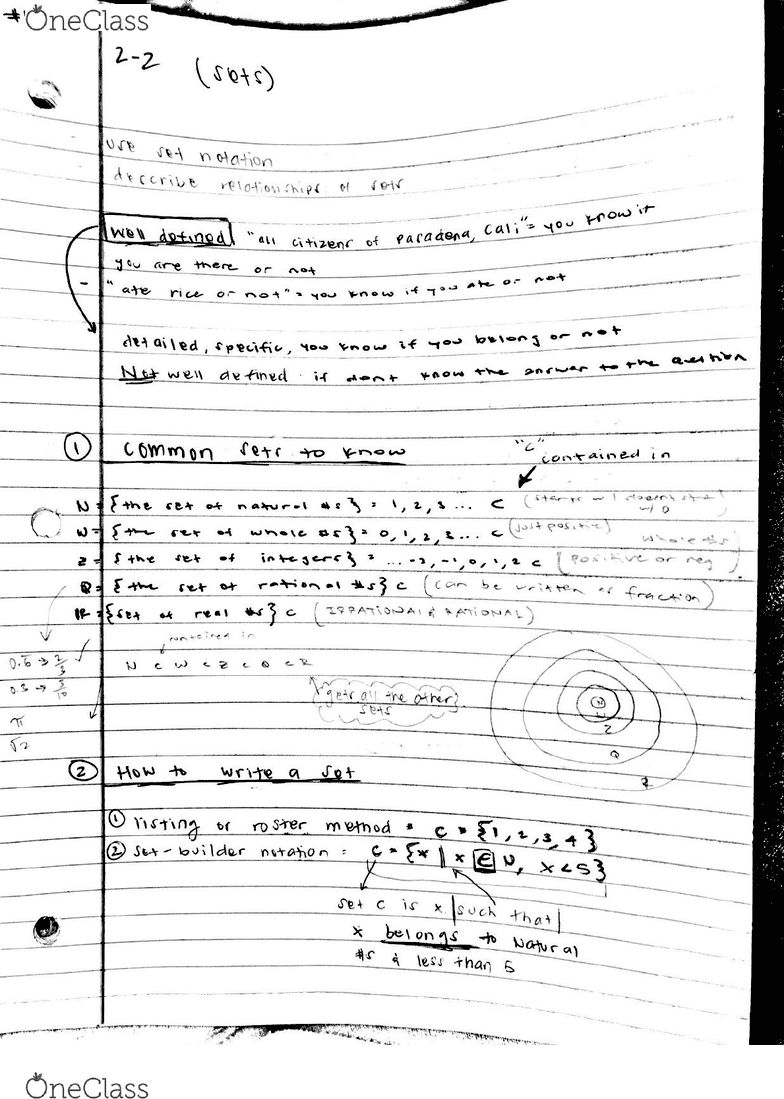 OneClass
2-2 (sets)
use set notation
describe relationships of sets
Well defined: "all citizens of Pasadena, Cali" = you know it
you are there or not
- "ate rice or not" = you know if you ate or not
detailed, specific, you know if you belong or not
Not well defined if dont know the answer to the question
① common sets to know
"⊂" contained in
N = {the set of natural #s} = 1, 2, 3 ... ⊂ (starts w/ 1 doesn't start w/ 0)
W = {the set of whole #s} = 0, 1, 2, 3 ... ⊂ (just positive) whole #s
Z = {the set of integers} = ... -2, -1, 0, 1, 2 ⊂ (positive or neg)
Q = {the set of rational #s} ⊂ (can be written as fraction)
IR = {set of real #s} ⊂ (IRRATIONAL & RATIONAL)
contained in
N ⊂ W ⊂ Z ⊂ Q ⊂ R
gets all the other sets
0.6 → 2/3
0.3 → 3/10
π
√2
N
W
Z
Q
R
② How to write a set
① listing or roster method = C = {1, 2, 3, 4}
② set-builder notation = C = {x | x ∈ N, x < 5}
set C is x |such that|
x belongs to Natural
#s & less than 5
OneClass